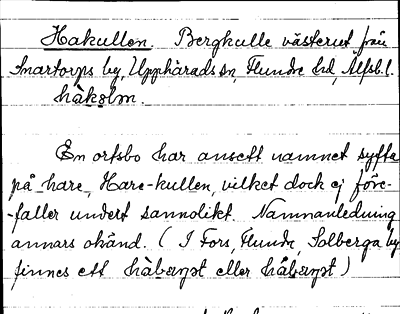 Hakullen. Bergkulle västerut från
Snartorps by, Upphärads sn, Flundre hd, Älfsb. l.
hàkɷlm.
En ortsbo har ansett namnet syfta
på hare, Hare-kullen, vilket dock ej före-
-faller vidare sannolikt. Namnanledning
annars okänd. (I Fors, Flundre, Solberga by
finnes ett
eller
)